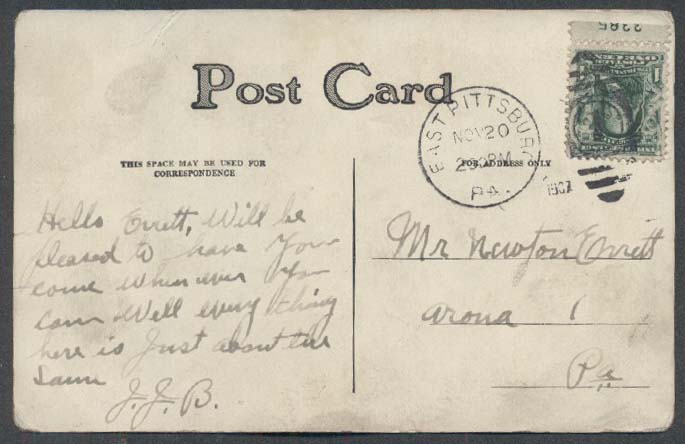 3385
Post Card
EAST PITTSBURG
NOV 20
PA.
1907
THIS SPACE MAY BE USED FOR
CORRESPONDENCE
FOR ADDRESS ONLY
Hello Errett, Will be
pleased to have You
come whenever You
can Well every thing
here is Just about the
same
J. J. B.
Mr Newton Errett
arona
Pa